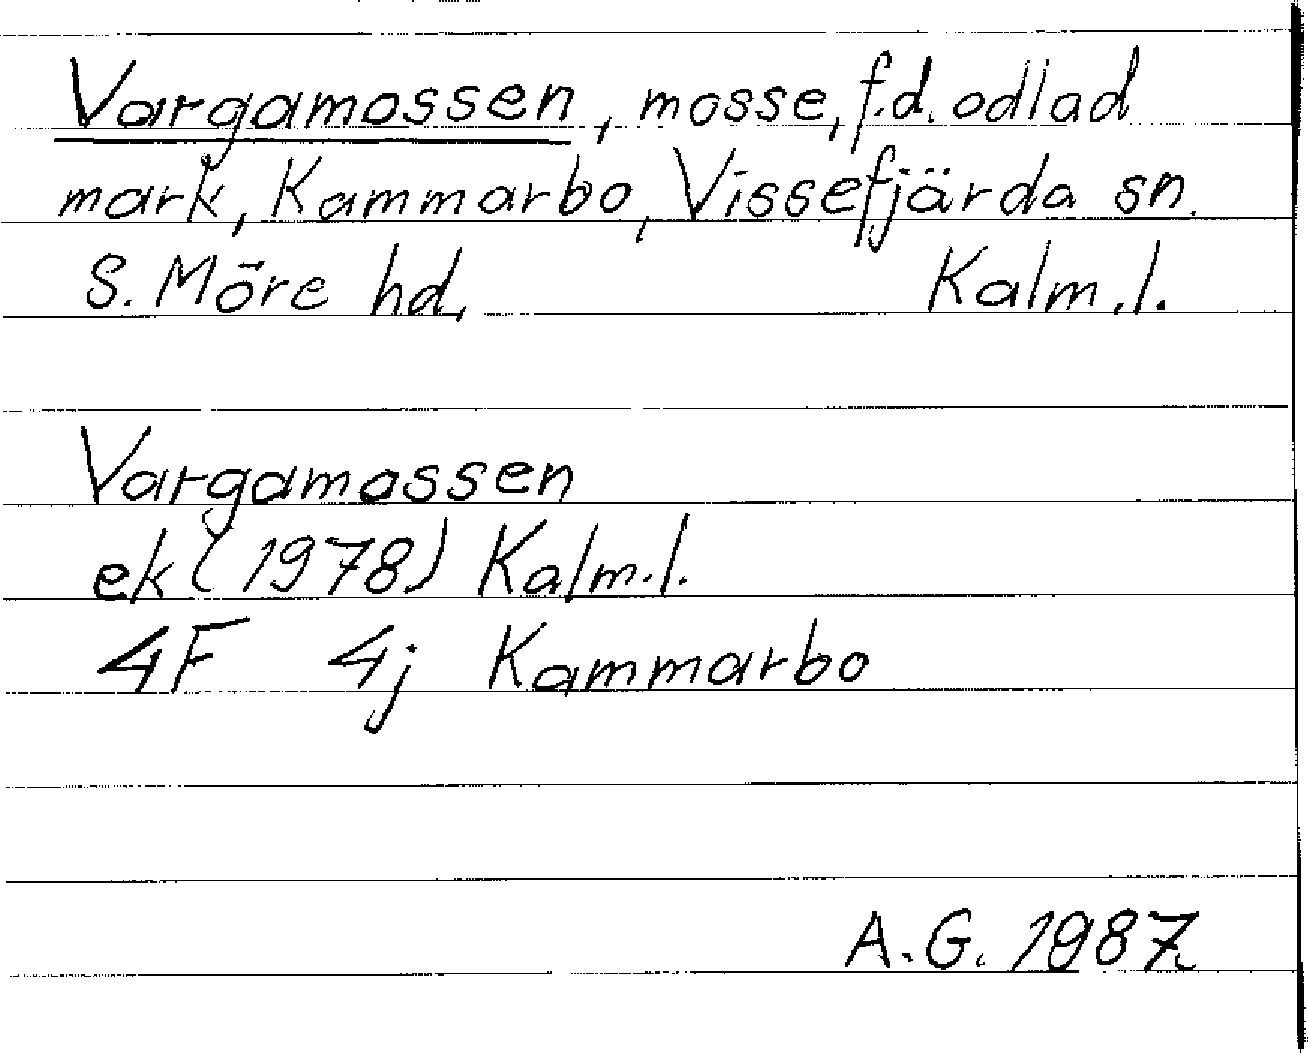 Vargamossen, mosse, f.d. odlad
mark, Kammarbo, Vissefjärda sn.
S. Möre hd, Kalm.l.
Vargamossen
ek (1978) Kalm.l.
4F 4j Kammarbo
A.G. 1987